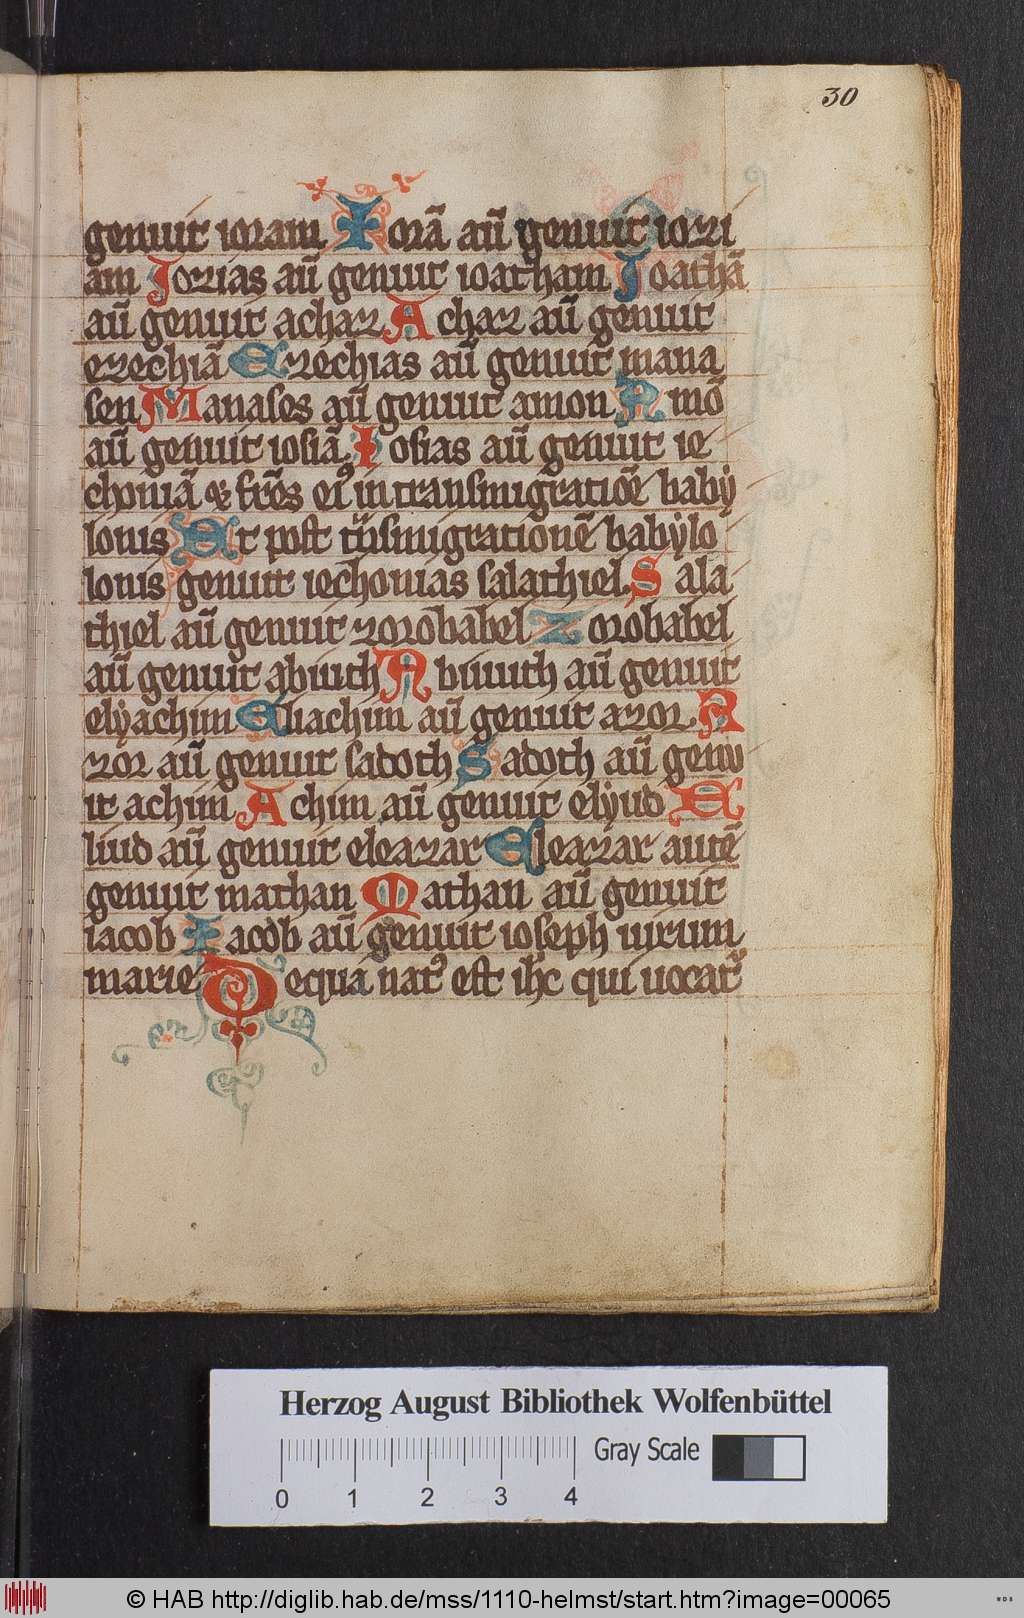 30
genuit ioram Iorā aū genuit iozi
am Jozias aū genuit ioatham Joathā
aū genuit achaz Achaz aū genuit
ezechiā Ezechias aū genuit mana
sen Manases aū genuit amon Amō
aū genuit iosiā Iosias aū genuit ie
choniā & fr̄es eiꝰ in transmigratiōe baby
lonis Et post tn̄smigrationē babylo
lonis genuit iechonias salathiel Sala
thiel aū genuit zorobabel Zorobabel
aū genuit abiuth Abiuuth aū genuit
elyachim Eliachim aū genuit azor A
zor aū genuit sadoth Sadoth aū genu
it achim Achim aū genuit elyud E
liud aū genuit eleazar Eleazar autē
genuit mathan Mathan aū genuit
iacob Iacob aū genuit ioseph uirum
marie De qua natꝰ est ih̄c qui uocatr᷑
Herzog August Bibliothek Wolfenbüttel
Gray Scale
0 1 2 3 4
© HAB http://diglib.hab.de/mss/1110-helmst/start.htm?image=00065